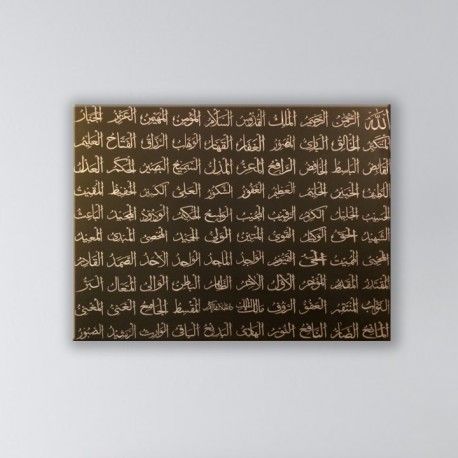 الله الرحمن الرحيم الملك القدوس السلام المؤمن المهيمن العزيز الجبار
المتكبر الخالق البارئ المصور الغفار القهار الوهاب الرزاق الفتاح العليم
القابض الباسط الخافض الرافع المعز المذل السميع البصير الحكم العدل
اللطيف الخبير الحليم العظيم الغفور الشكور العلي الكبير الحفيظ المقيت
الحسيب الجليل الكريم الرقيب المجيب الواسع الحكيم الودود المجيد الباعث
الشهيد الحق الوكيل القوي المتين الولي الحميد المحصي المبدئ المعيد
المحيي المميت الحي القيوم الواجد الماجد الواحد الاحد الصمد القادر
المقتدر المقدم المؤخر الأول الآخر الظاهر الباطن الوالي المتعال البر
التواب المنتقم العفو الرؤوف مالك الملك ذو الجلال والإكرام المقسط الجامع الغني المغني
المانع الضار النافع النور الهادي البديع الباقي الوارث الرشيد الصبور